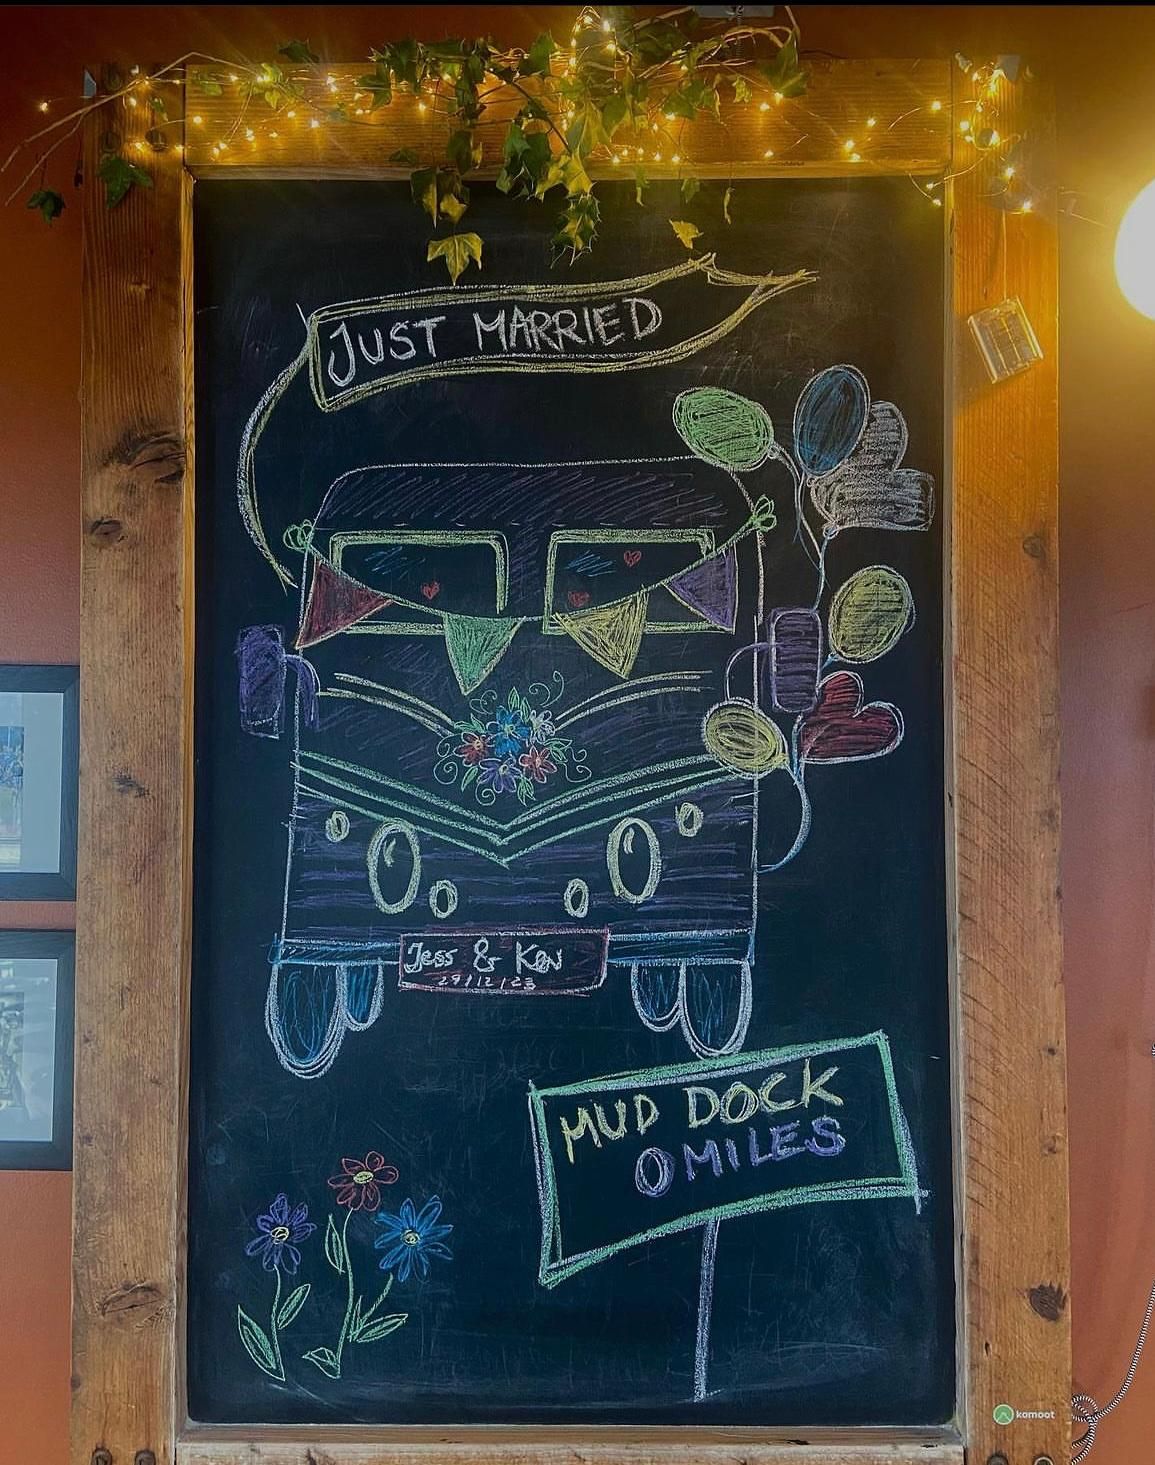 JUST MARRIED
Jess & Kev
29/12/23
MUD DOCK
0 MILES
komoot